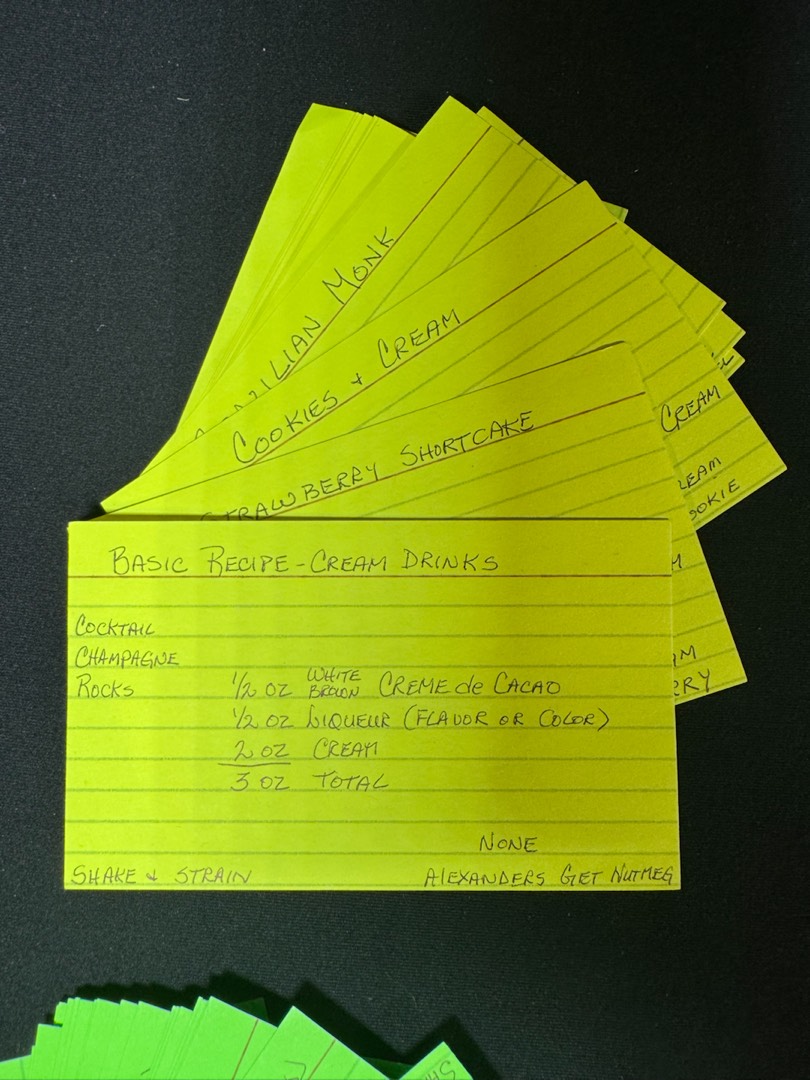 MONK
COOKIES & CREAM
STRAWBERRY SHORTCAKE
CREAM
BASIC RECIPE - CREAM DRINKS
COCKTAIL
CHAMPAGNE
ROCKS 1/2 OZ WHITE BROWN CREME de CACAO
1/2 OZ LIQUEUR (FLAVOR OR COLOR)
2 OZ CREAM
3 OZ TOTAL
NONE
SHAKE & STRAIN ALEXANDERS GET NUTMEG